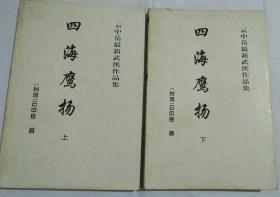 云中岳最新武侠作品集
四海鹰扬
上
(台湾)云中岳 著
云中岳最新武侠作品集
四海鹰扬
下
(台湾)云中岳 著